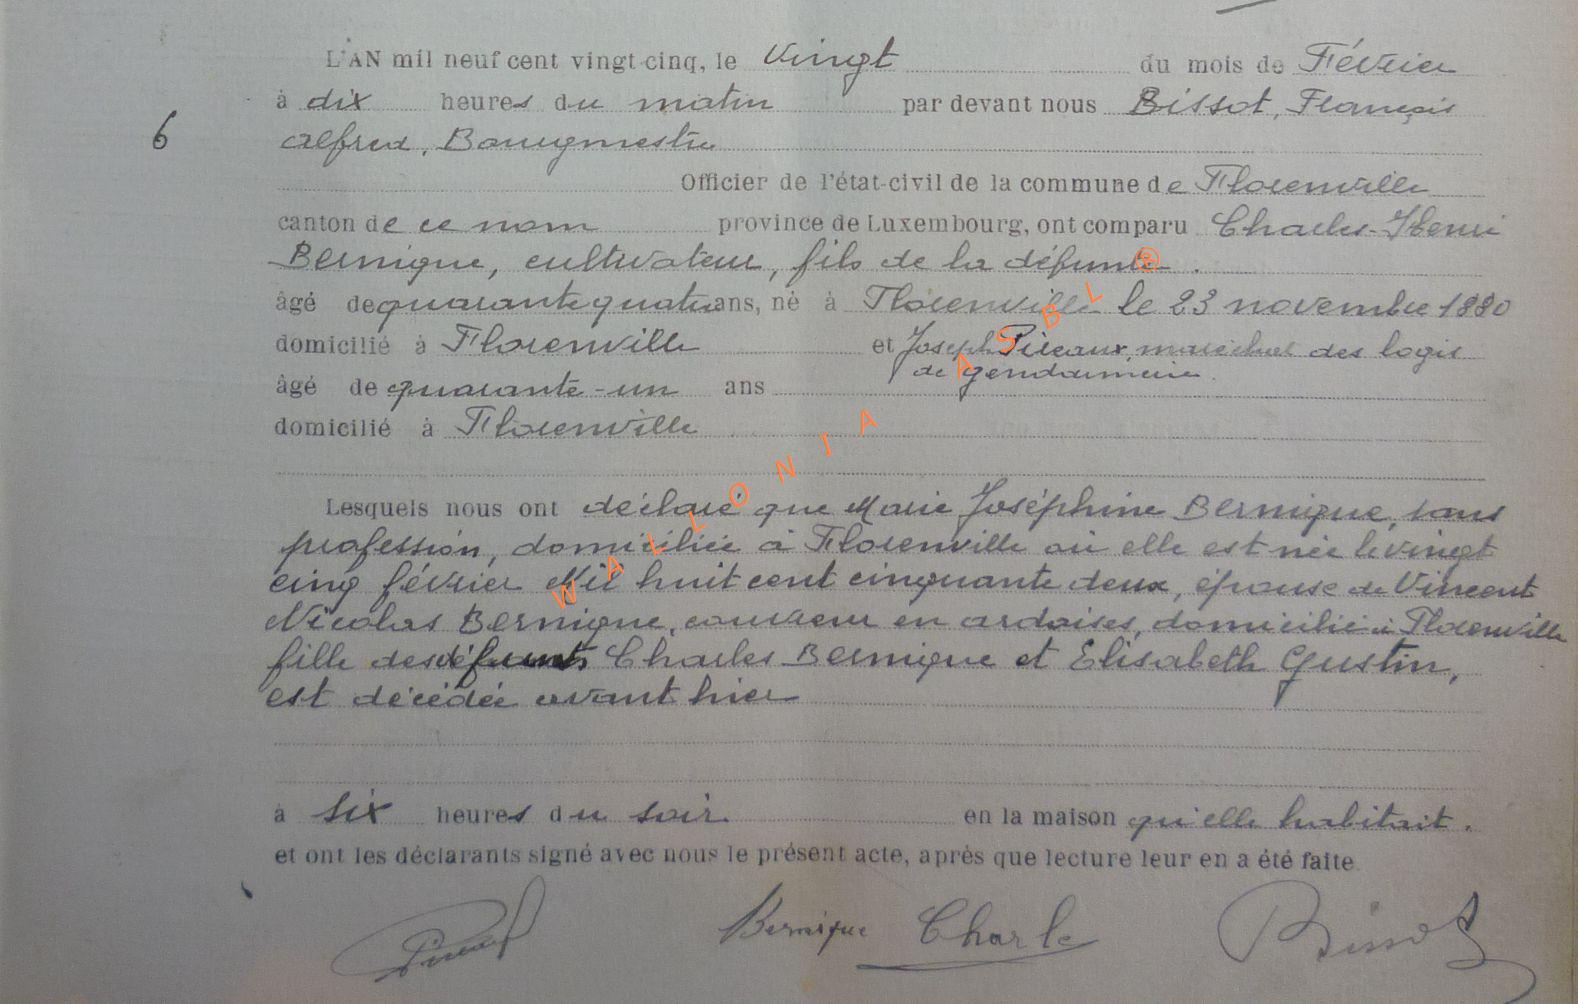 L'AN mil neuf cent vingt-cinq, le Vingt du mois de Février
à dix heures du matin par devant nous Bissot, François
6
Alfred, Bourgmestre
Officier de l'état-civil de la commune de Florenville
canton de ce nom province de Luxembourg, ont comparu Charles-Henri
Bernique, cultivateur, fils de la défunte.
âgé de quarante quatre ans, né à Florenville le 23 novembre 1880
domicilié à Florenville et Joseph Pireaux, maréchal des logis
de gendarmerie.
âgé de quarante-un ans
domicilié à Florenville
Lesquels nous ont déclaré que Marie Joséphine Bernique, sans
profession, domiciliée à Florenville où elle est née le vingt
cinq février Mil huit cent cinquante deux, épouse de Vincent
Nicolas Bernique, couvreur en ardoises, domicilié à Florenville
fille des défunts Charles Bernique et Elisabeth Gustin,
est décédée avant hier
à six heures du soir en la maison qu'elle habitait.
et ont les déclarants signé avec nous le présent acte, après que lecture leur en a été faite
Bernique Charle Bissot
WALLONIA ASBL ®